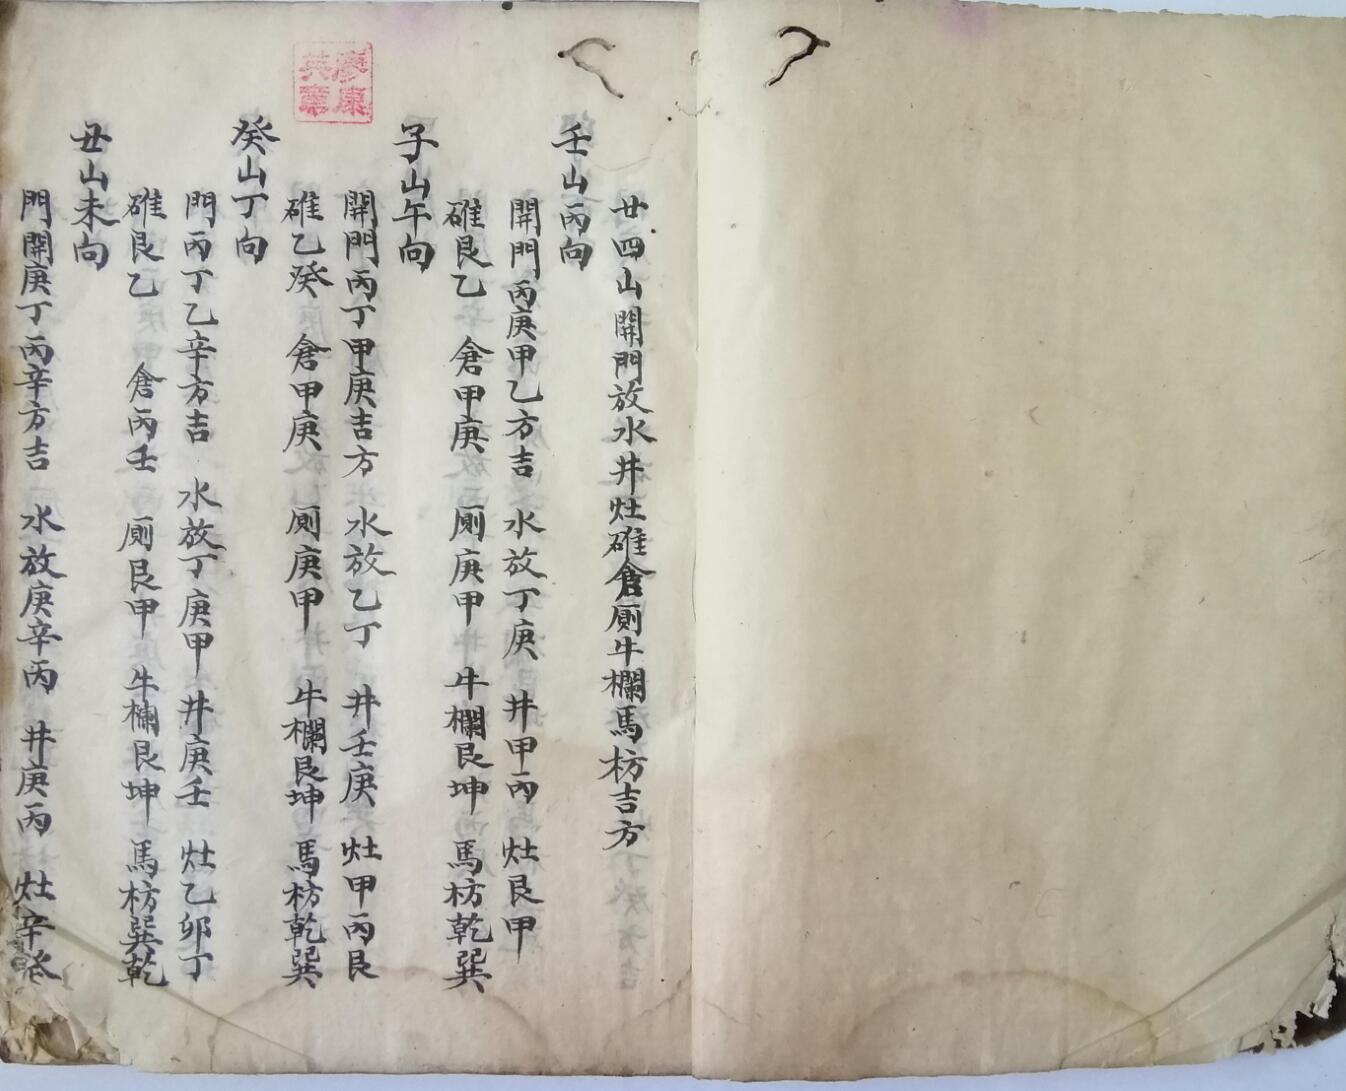 廿四山開門放水井灶碓倉厠牛欄馬枋吉方
壬山丙向
開門丙庚甲乙方吉 水放丁庚 井甲丙 灶艮甲
碓艮乙 倉甲庚 厠庚甲 牛欄艮坤 馬枋乾巽
子山午向
開門丙丁甲庚吉方 水放乙丁 井壬庚 灶甲丙艮
碓乙癸 倉甲庚 厠庚甲 牛欄艮坤 馬枋乾巽
癸山丁向
門丙丁乙辛方吉 水放丁庚甲 井庚壬 灶乙卯丁
碓艮乙 倉丙壬 厠艮甲 牛欄艮坤 馬枋巽乾
丑山未向
門開庚丁丙辛方吉 水放庚辛丙 井庚丙 灶辛癸
廖康
英章